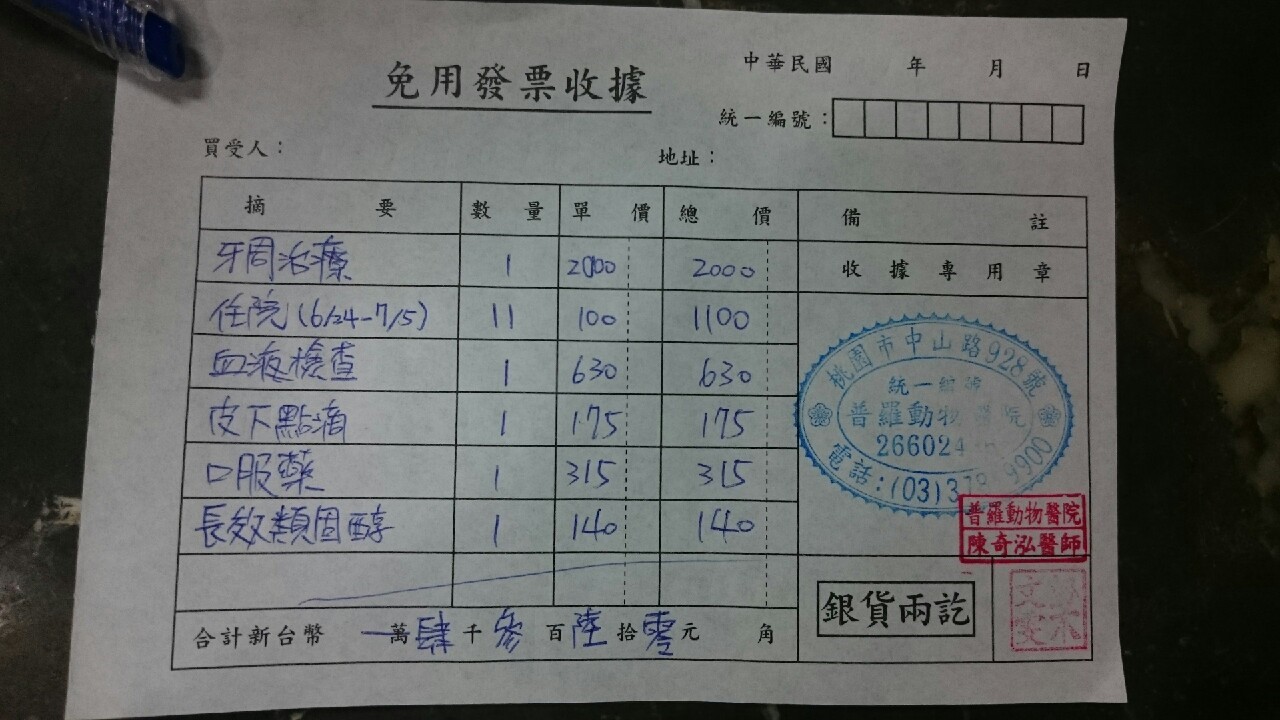 免用發票收據
中華民國 年 月 日
統一編號：
買受人：
地址：
摘要 數量 單價 總價 備註
牙周治療 1 2000 2000 收據專用章
住院(6/24-7/5) 11 100 1100
血液檢查 1 630 630
皮下點滴 1 175 175
口服藥 1 315 315
長效類固醇 1 140 140
桃園市中山路928號
統一編號
普羅動物醫院
266024
電話：(03)37 9900
普羅動物醫院
陳奇泓醫師
銀貨兩訖
合計新台幣 萬肆千參百陸拾零元 角